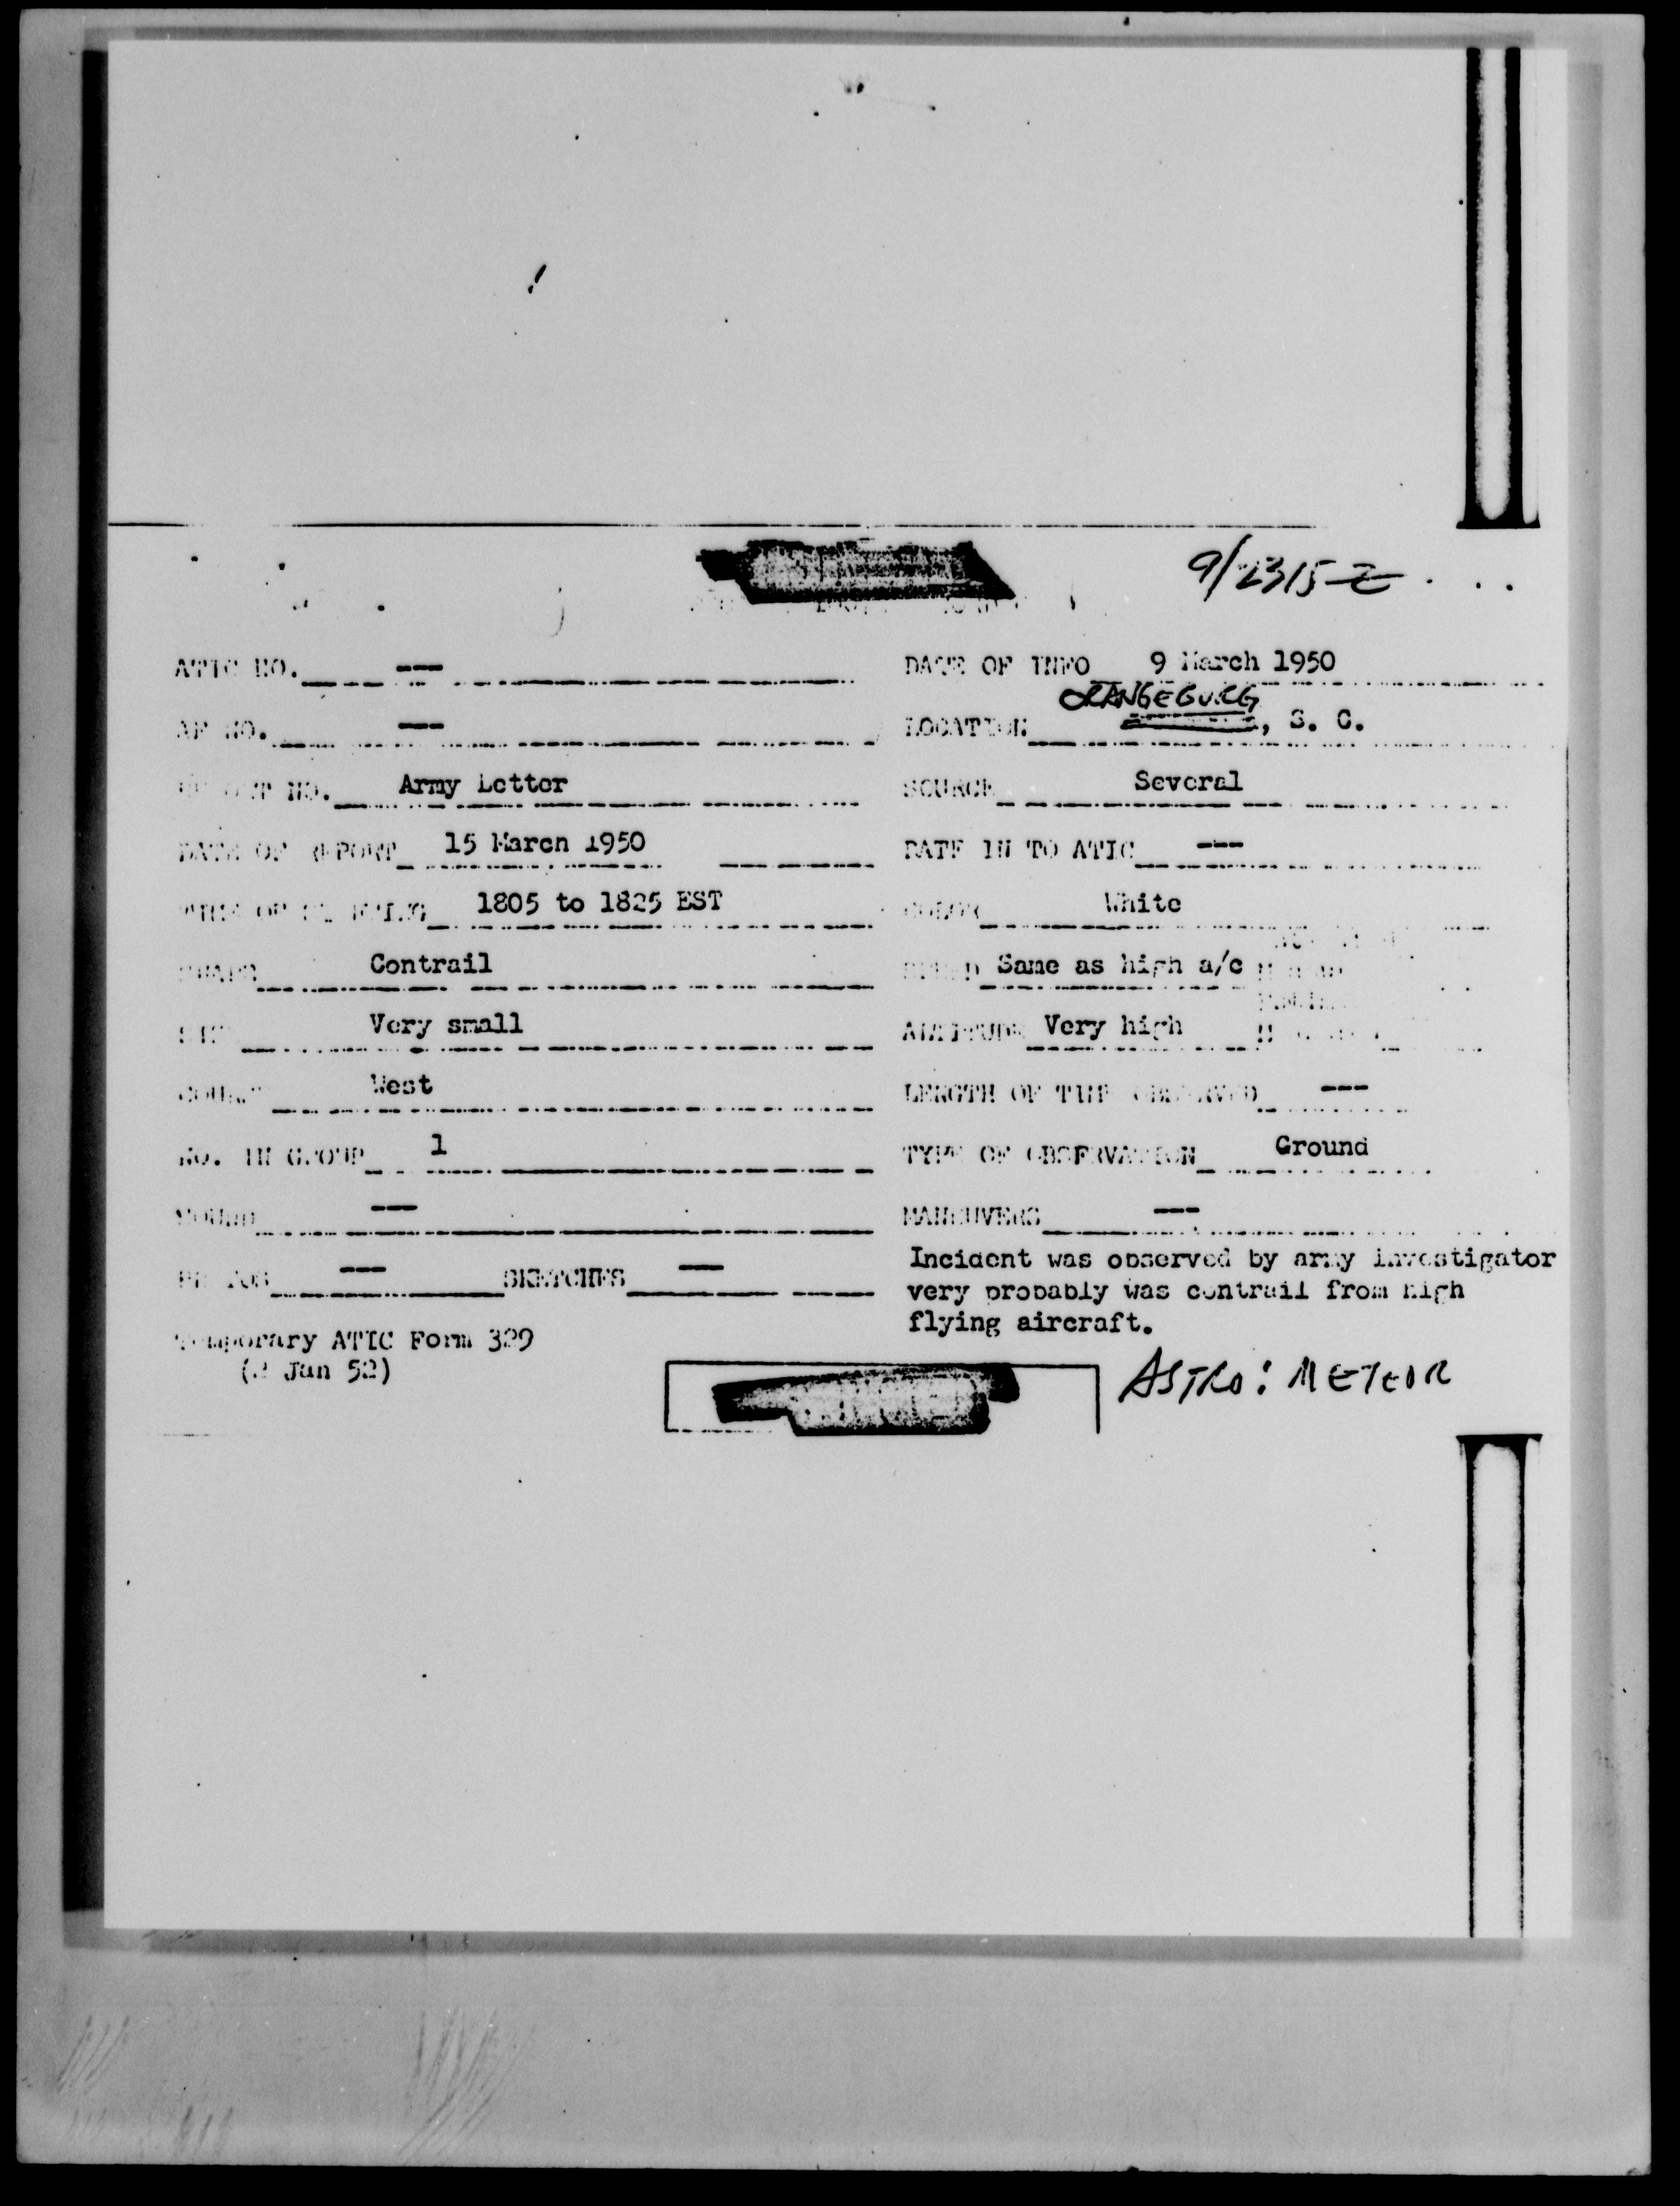 9/2315Z
ATIC NO. ---
DATE OF INFO 9 March 1950
ORANGEBURG
AF NO. ---
LOCATION , S. C.
NO. Army Letter
SOURCE Several
DATE OF REPORT 15 March 1950
DATE IN TO ATIC ---
TIME OF SIGHTING 1805 to 1825 EST
COLOR White
SHAPE Contrail
SPEED Same as high a/c
SIZE Very small
ALTITUDE Very high
COURSE West
LENGTH OF TIME OBSERVED ---
NO. IN GROUP 1
TYPE OF OBSERVATION Ground
SOUND ---
MANEUVERS ---
PHOTOS --- SKETCHES ---
Incident was observed by army investigator
very probably was contrail from high
flying aircraft.
Temporary ATIC Form 329
( Jan 52)
ASTRO: METEOR